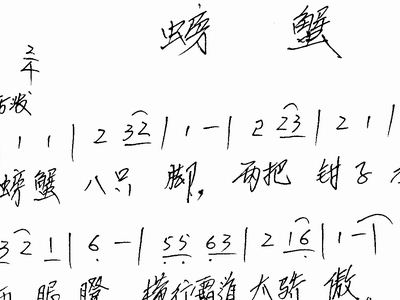 螃蟹
2/4
活泼
1 1 | 2 32 | 1 - | 2 23 | 2 1 |
螃蟹八只脚,两把钳子
321 | 6 - | 55 63 | 2 16 | 1 - |
眼瞪 横行霸道太骄傲。